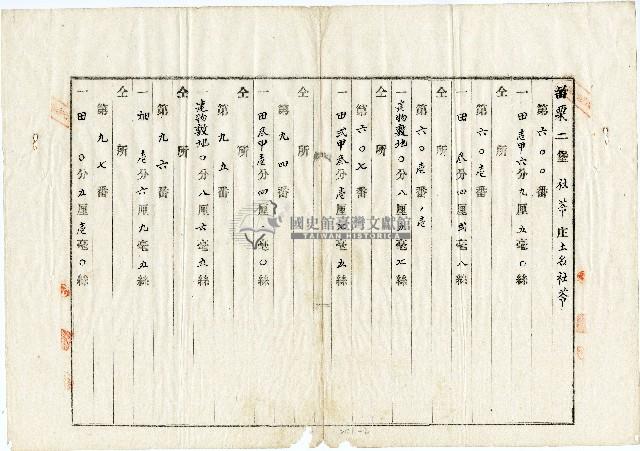 苗栗二堡社苓庄土名社苓
第六〇〇番
一田壱甲六分九厘五毫〇絲
仝所
第六〇壱番
一田叁分四厘弐毫八絲
仝所
第六〇壱番ノ壱
一建物敷地〇分八厘五毫七絲
仝所
第六〇七番
一田弐甲叁分壱厘七毫五絲
仝所
第九四番
一田叁甲壱分四厘毫〇絲
仝所
第九五番
一建物敷地〇分八厘六毫五絲
仝所
第九六番
一畑壱分六厘九毫五絲
仝所
第九七番
一田〇分五厘壱毫〇絲
國史館臺灣文獻館
TAIWAN HISTORICA